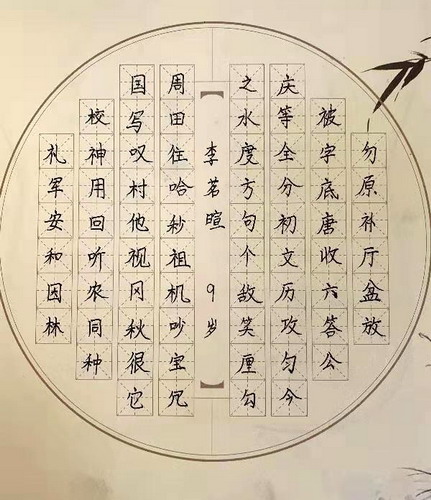 勿原补厅盆放
被字底唐收六答公
庆等全分初文历攻匀今
之水度方句个故笑厘勾
李茗暄 9岁
周田住哈秒祖机吵宝冗
国写叹村他视冈秋很它
校神用回听农同种
礼军安和因林